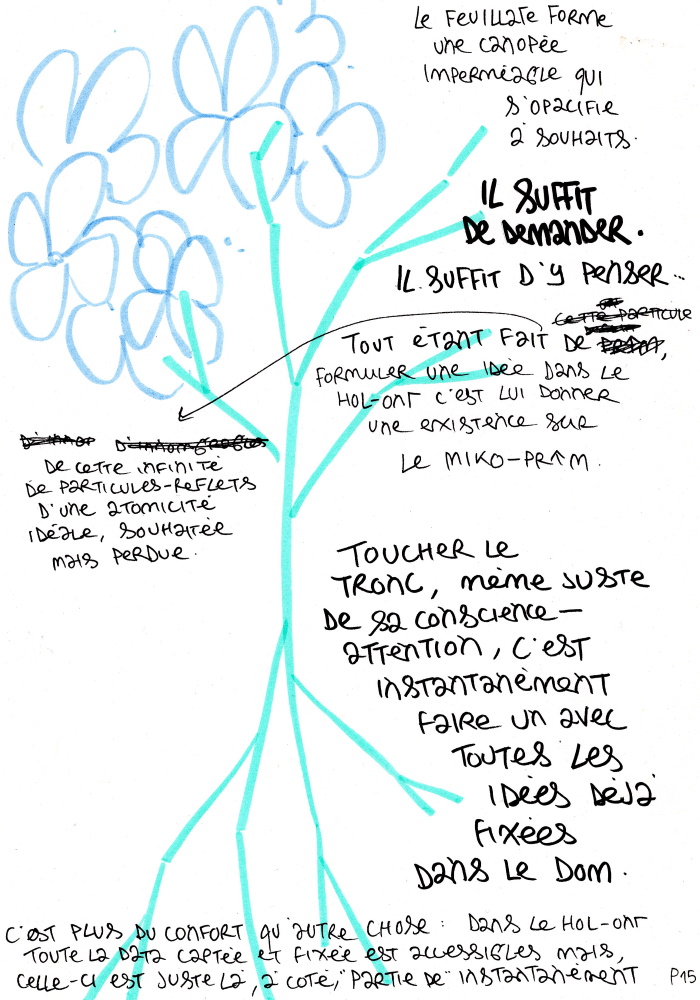 LE FEUILLATE FORME
UNE CANOPÉE
IMPERMÉABLE QUI
S'OPACIFIE
À SOUHAITS.
IL SUFFIT
DE DEMANDER.
IL SUFFIT D'Y PENSER...
CETTE PARTICULE
TOUT ÉTANT FAIT DE
FORMULER UNE IDÉE DANS LE
HOL-ONT C'EST LUI DONNER
UNE EXISTENCE SUR
LE MIKO-PRÂM.
DE CETTE INFINITÉ
DE PARTICULES-REFLETS
D'UNE ATOMICITÉ
IDÉALE, SOUHAITÉE
MAIS PERDUE.
TOUCHER LE
TRONC, MÊME JUSTE
DE SA CONSCIENCE-
ATTENTION, C'EST
INSTANTANÉMENT
FAIRE UN AVEC
TOUTES LES
IDÉES DÉJÀ
FIXÉES
DANS LE DOM.
C'EST PLUS DU CONFORT QU'AUTRE CHOSE : DANS LE HOL-ONT
TOUTE LA DATA CAPTÉE ET FIXÉE EST ACCESSIBLES MAIS,
CELLE-CI EST JUSTE LÀ, À COTÉ, "PARTIE DE" INSTANTANÉMENT
P15